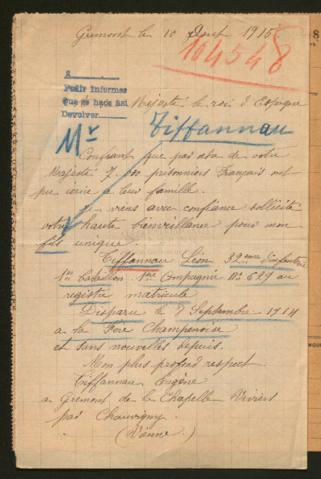 Gremont le 10 Aout 1915
104548
S
Pedir informes
Que se hace así
Devolver
Majesté le roi d'Espagne
Mr Tiffanneau
Confiant que par de votre
Majesté les prisonniers Français ont
pu écrire a leur famille.
Je viens avec confiance sollicité
votre haute bienveillance pour mon
fils unique.
Tiffanneau Léon 32eme Infanterie
1er Bataillon 1ere Compagnie No 629 au
registre matricule
Disparu le 8 Septembre 1914
a la Fère Champenoise
et sans nouvelles depuis.
Mon plus profond respect
Tiffanneau Eugène
a Gremont de la Chapelle Viviers
par Chauvigny
(Vienne)